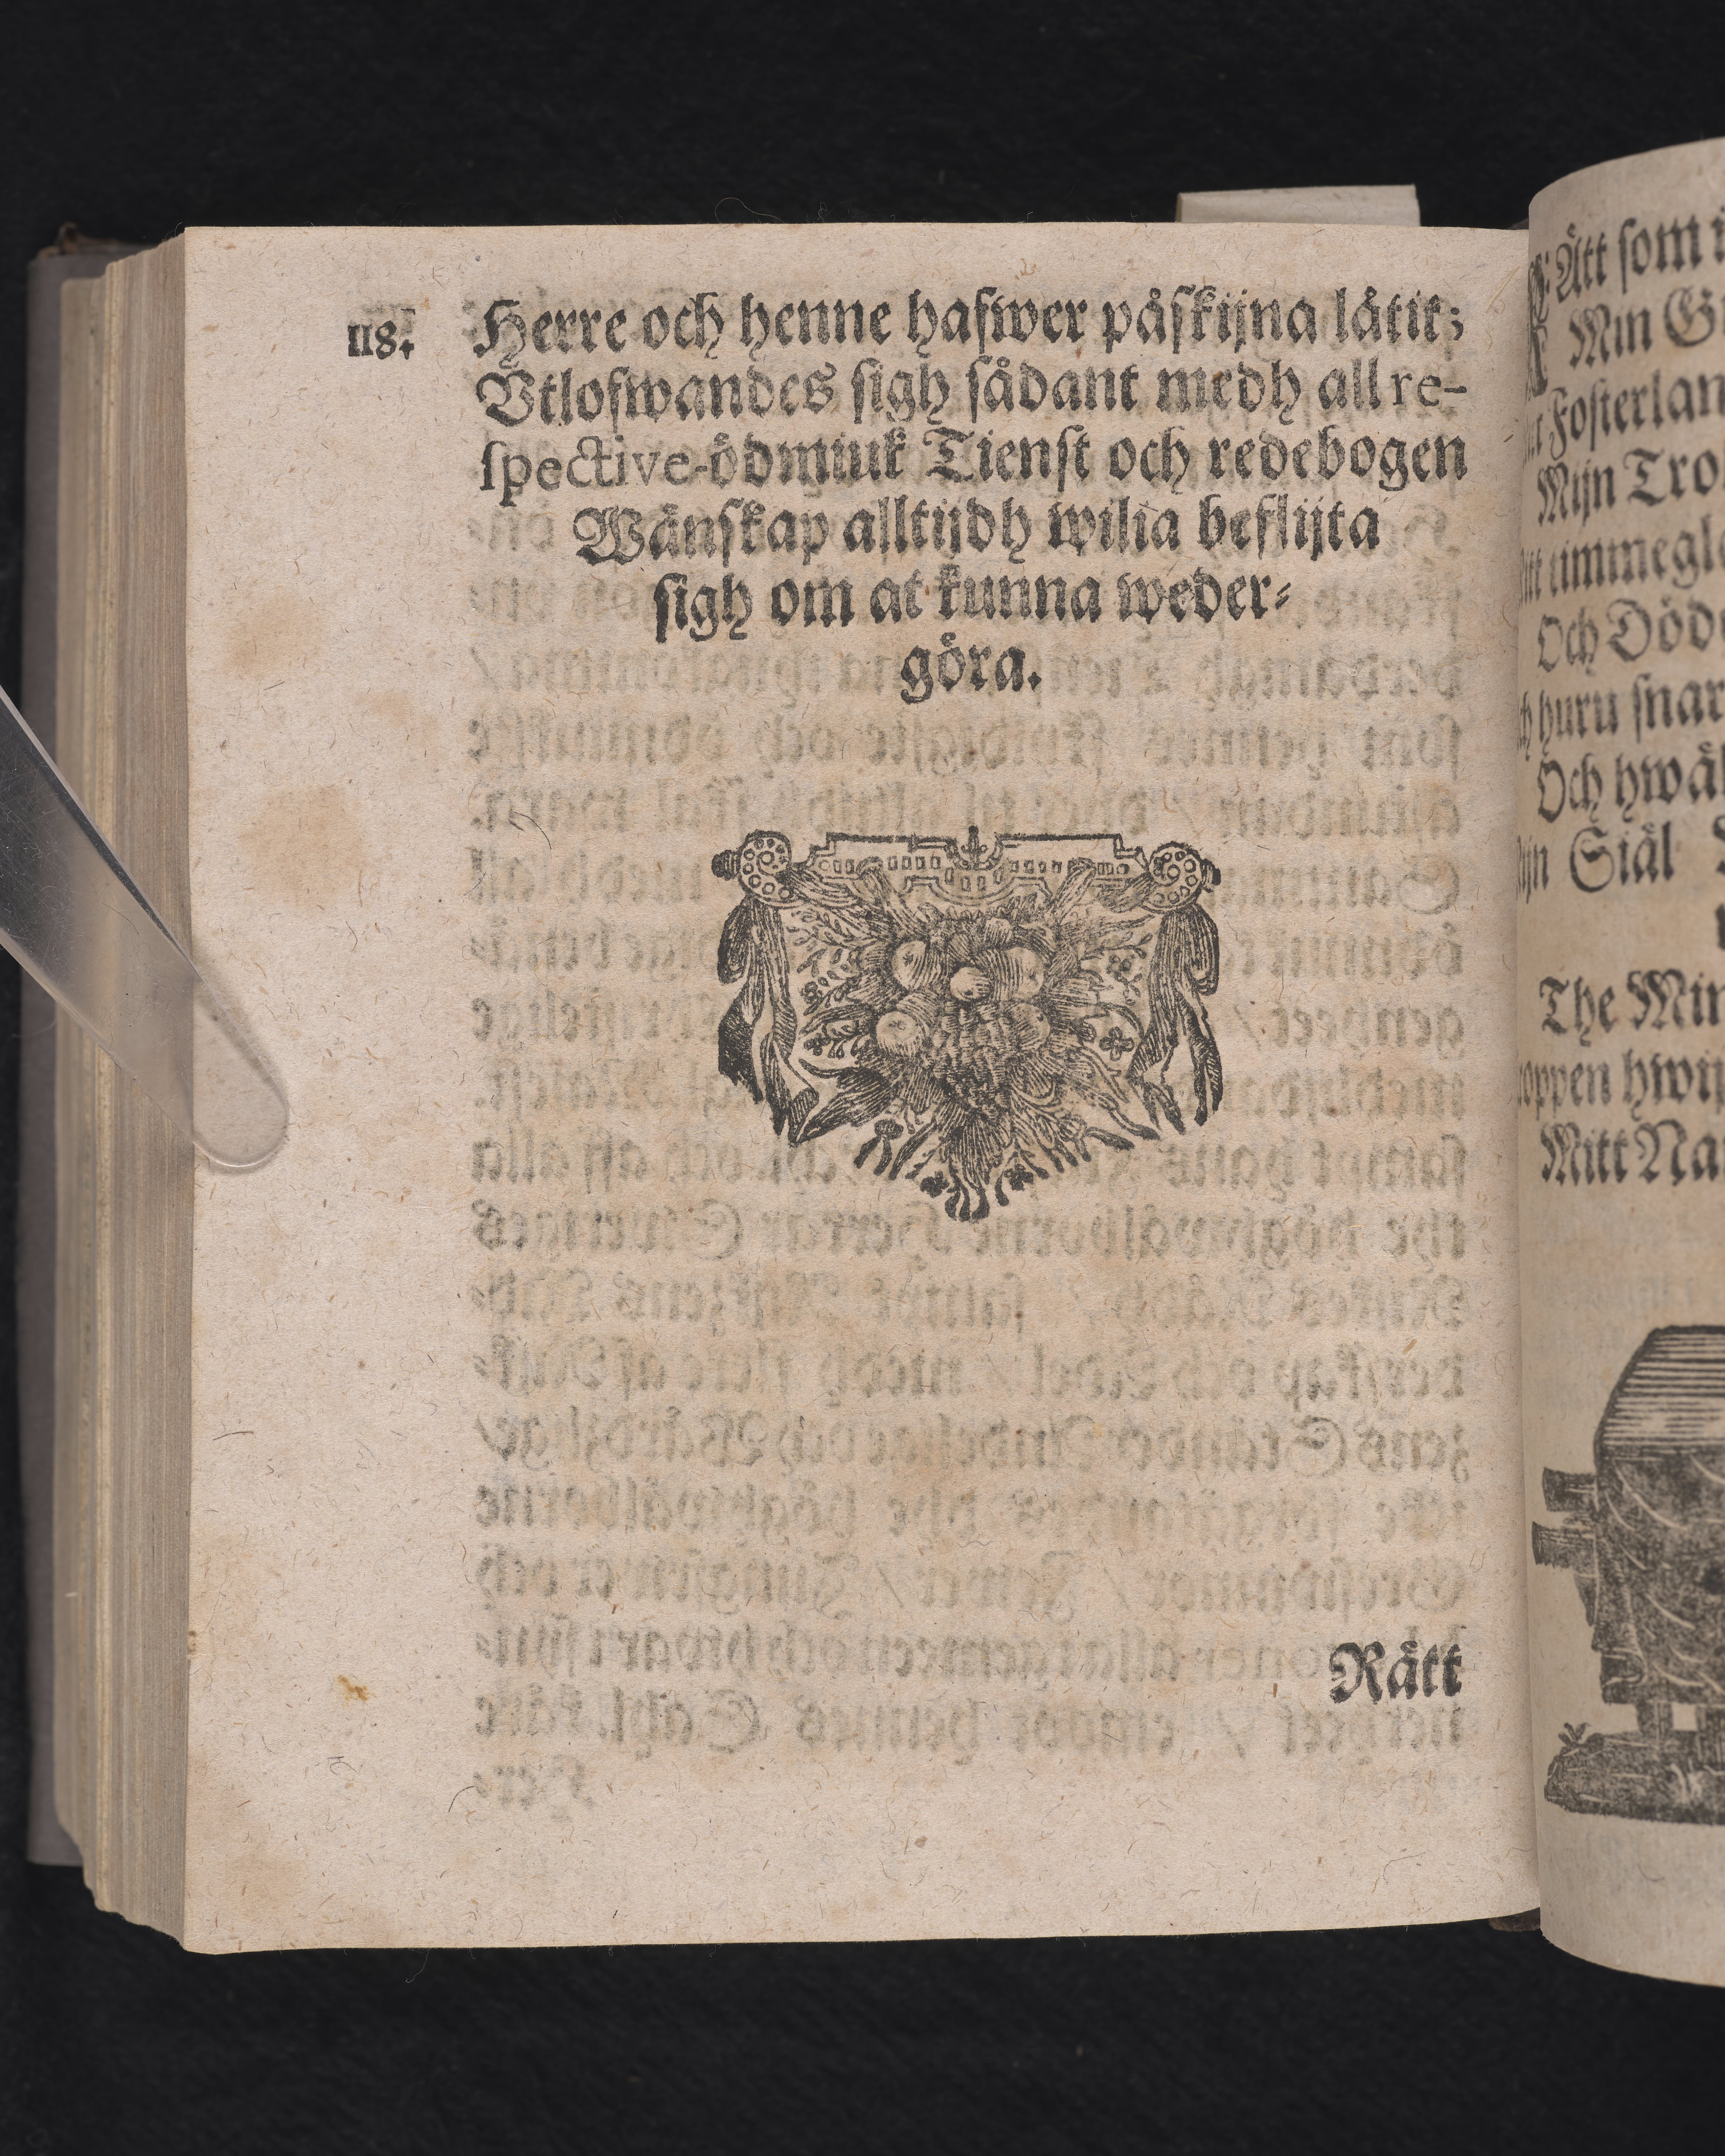 118.
Herre och henne hafwer påskijna låtit;
Vtlofwandes sigh sådant medh all re-
spective-ödmiuk Tienst och redebogen
Wänskap alltijdh wilia beflijta
sigh om at kunna weder-
göra.
Rätt
Ätt som
Min
Fosterlan
Mijn Tro
timmegl
Och Död
huru snar
Och hwäl
Siäl
The Min
oppen hwij
Mitt Na